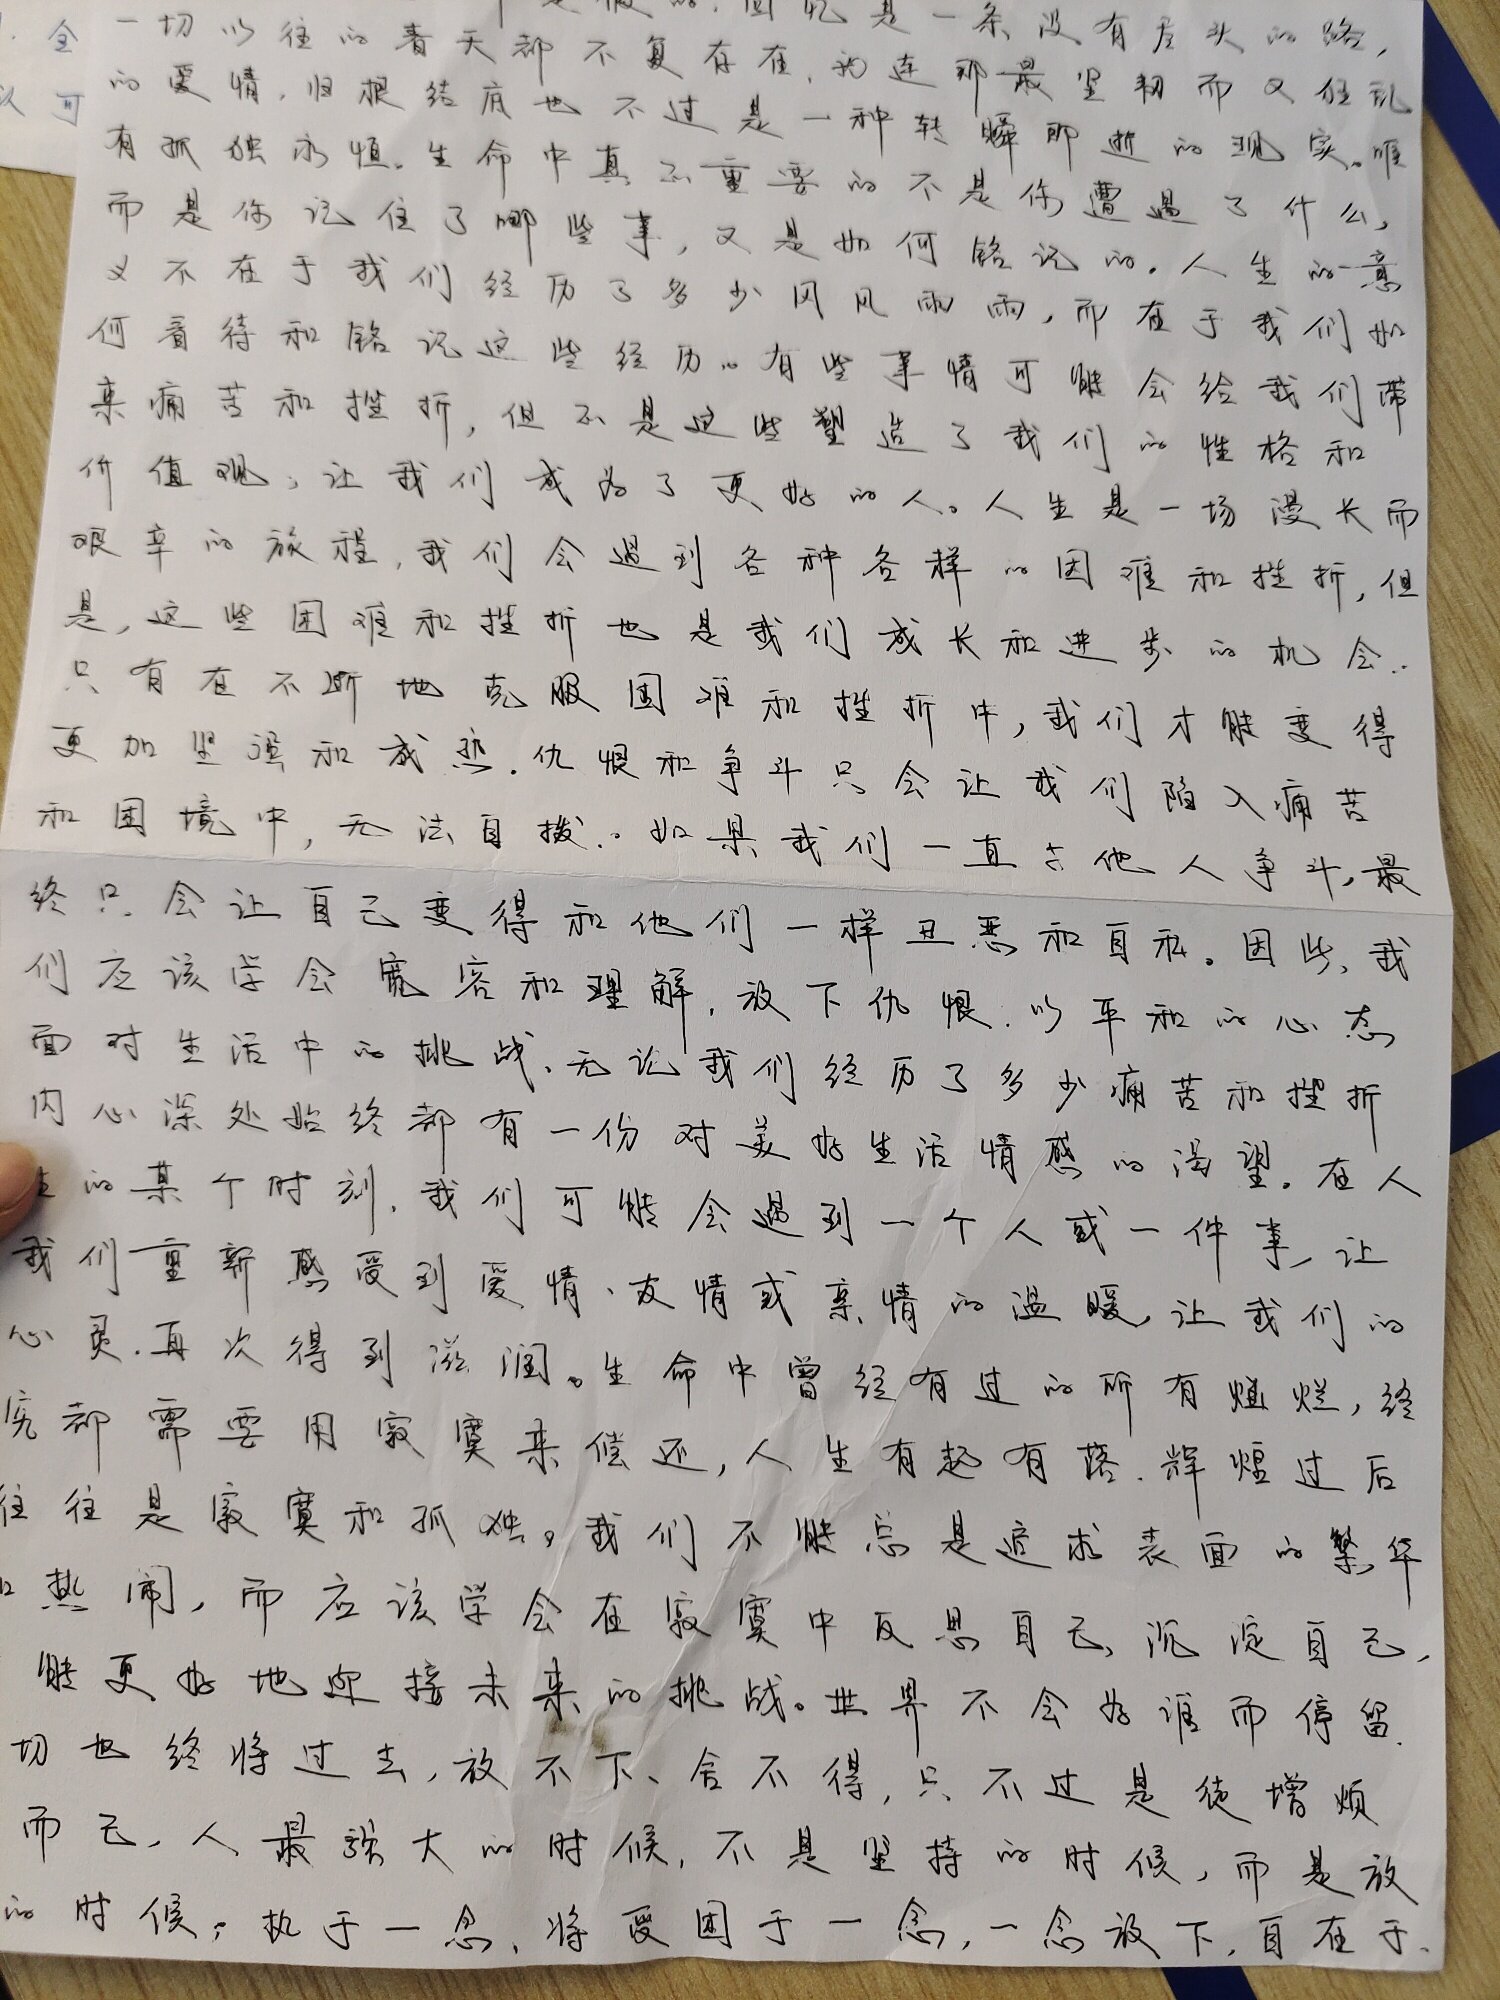 是假的，回忆是一条没有尽头的路，
一切以往的春天都不复存在，就连那最坚韧而又狂乱
的爱情，归根结底也不过是一种转瞬即逝的现实。唯
有孤独永恒。生命中真正重要的不是你遭遇了什么，
而是你记住了哪些事，又是如何铭记的。人生的意
义不在于我们经历了多少风风雨雨，而在于我们如
何看待和铭记这些经历。有些事情可能会给我们带
来痛苦和挫折，但正是这些塑造了我们的性格和
价值观，让我们成为了更好的人。人生是一场漫长而
艰辛的旅程，我们会遇到各种各样的困难和挫折，但
是，这些困难和挫折也是我们成长和进步的机会.
只有在不断地克服困难和挫折中，我们才能变得
更加坚强和成熟。仇恨和争斗只会让我们陷入痛苦
和困境中，无法自拔。如果我们一直与他人争斗，最
终只会让自己变得和他们一样丑恶和自私。因此，我
们应该学会宽容和理解，放下仇恨，以平和的心态
面对生活中的挑战，无论我们经历了多少痛苦和挫折
内心深处始终都有一份对美好生活情感的渴望。在人
生的某个时刻，我们可能会遇到一个人或一件事，让
我们重新感受到爱情、友情或亲情的温暖，让我们的
心灵再次得到滋润。生命中曾经有过的所有灿烂，终
究都需要用寂寞来偿还，人生有起有落，辉煌过后
往往是寂寞和孤独。我们不能总是追求表面的繁华
和热闹，而应该学会在寂寞中反思自己，沉淀自己，
能更好地迎接未来的挑战。世界不会为谁而停留，
切也终将过去，放不下、舍不得，只不过是徒增烦
而已，人最强大的时候，不是坚持的时候，而是放
的时候，执于一念，将受困于一念，一念放下，自在于
全
认可